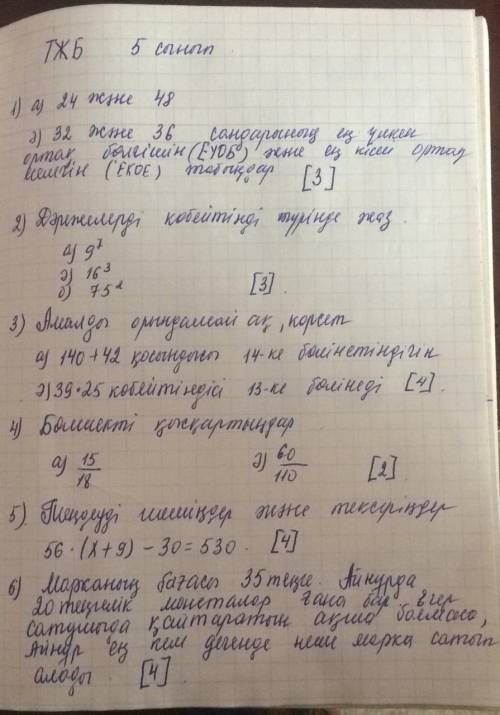 ТЖБ 5 сынып
1) а) 24 және 48
ә) 32 және 36 сандарының ең үлкен
ортақ бөлгішін (ЕҮОБ) және ең кіші ортақ
еселігін (ЕКОЕ) табыңдар [3]
2) Дәрежелерді көбейтінді түрінде жаз.
а) 9⁷
ә) 16³
б) 75² [3].
3) Амалды орындамай ақ, көрсет
а) 140+42 қосындысы 14-ке бөлінетіндігін
ә) 39•25 көбейтіндісі 13-ке бөлінеді [4].
4) Бөлшекті қысқартыңдар
а) 15/18 ә) 60/110 [2]
5) Теңдеуді шешіңдер және тексеріңдер
56•(х+9)-30=530. [4]
6) Марканың бағасы 35 теңге. Айнурда
20 теңгелік монеталар ғана бар. Егер
сатушыда қайтаратын ақша болмаса,
Айнур ең кем дегенде неше марка сатып
алады. [4].